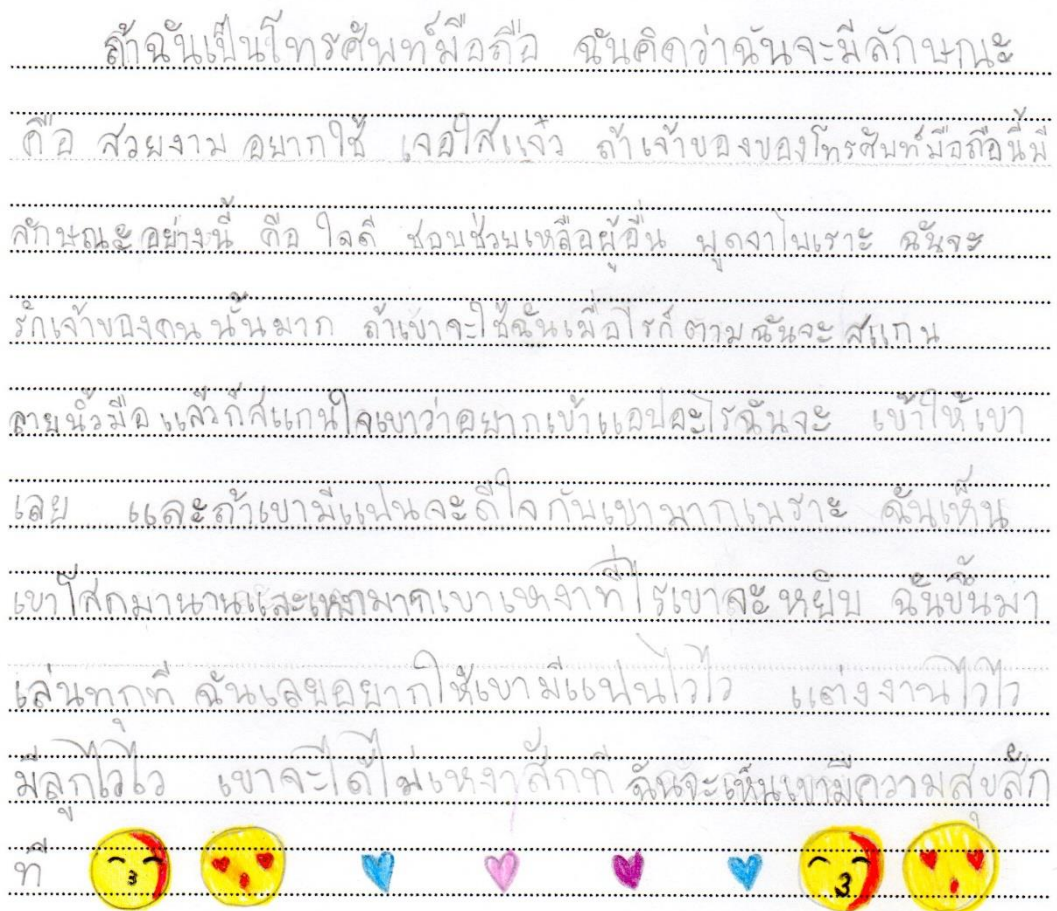 ถ้าฉันเป็นโทรศัพท์มือถือ ฉันคิดว่าฉันจะมีลักษณะ
คือ สวยงาม อยากใช้ เจอใสแจ๋ว ถ้าเจ้าของของโทรศัพท์มือถือนี้มี
ลักษณะอย่างนี้ คือ ใจดี ชอบช่วยเหลือผู้อื่น พูดจาไพเราะ ฉันจะ
รักเจ้าของคนนั้นมาก ถ้าเขาจะใช้ฉันเมื่อไรก็ตามฉันจะสแกน
ลายนิ้วมือแล้วก็สแกนใจเขาว่าอยากเข้าแอปอะไรฉันจะ เข้าให้เขา
เลย และถ้าเขามีแฟนจะดีใจกับเขามากเพราะ ฉันเห็น
เขาโสดมานานและเหงามากเขาเหงาทีไรเขาจะหยิบ ฉันขึ้นมา
เล่นทุกที ฉันเลยอยากให้เขามีแฟนไวไว แต่งงานไวไว
มีลูกไวไว เขาจะได้ไม่เหงาสักที ฉันจะเห็นเขามีความสุขสัก
ที